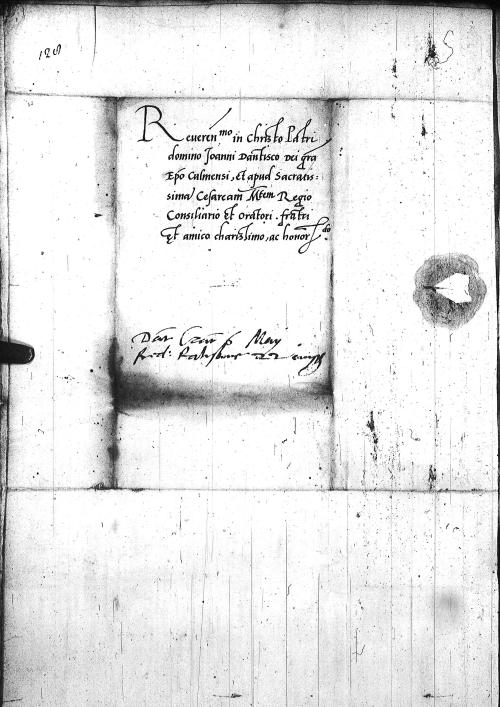 128
Reveren^mo in Christo Patri
domino Joanni Dantisco Dei gra
Epo Culmensi, Et apud Sacratis:
sima Cesaream M^tem Regio
Consiliario Et Oratori . fratri
Et amico charissimo, ac honor^do
Dat May
Red: